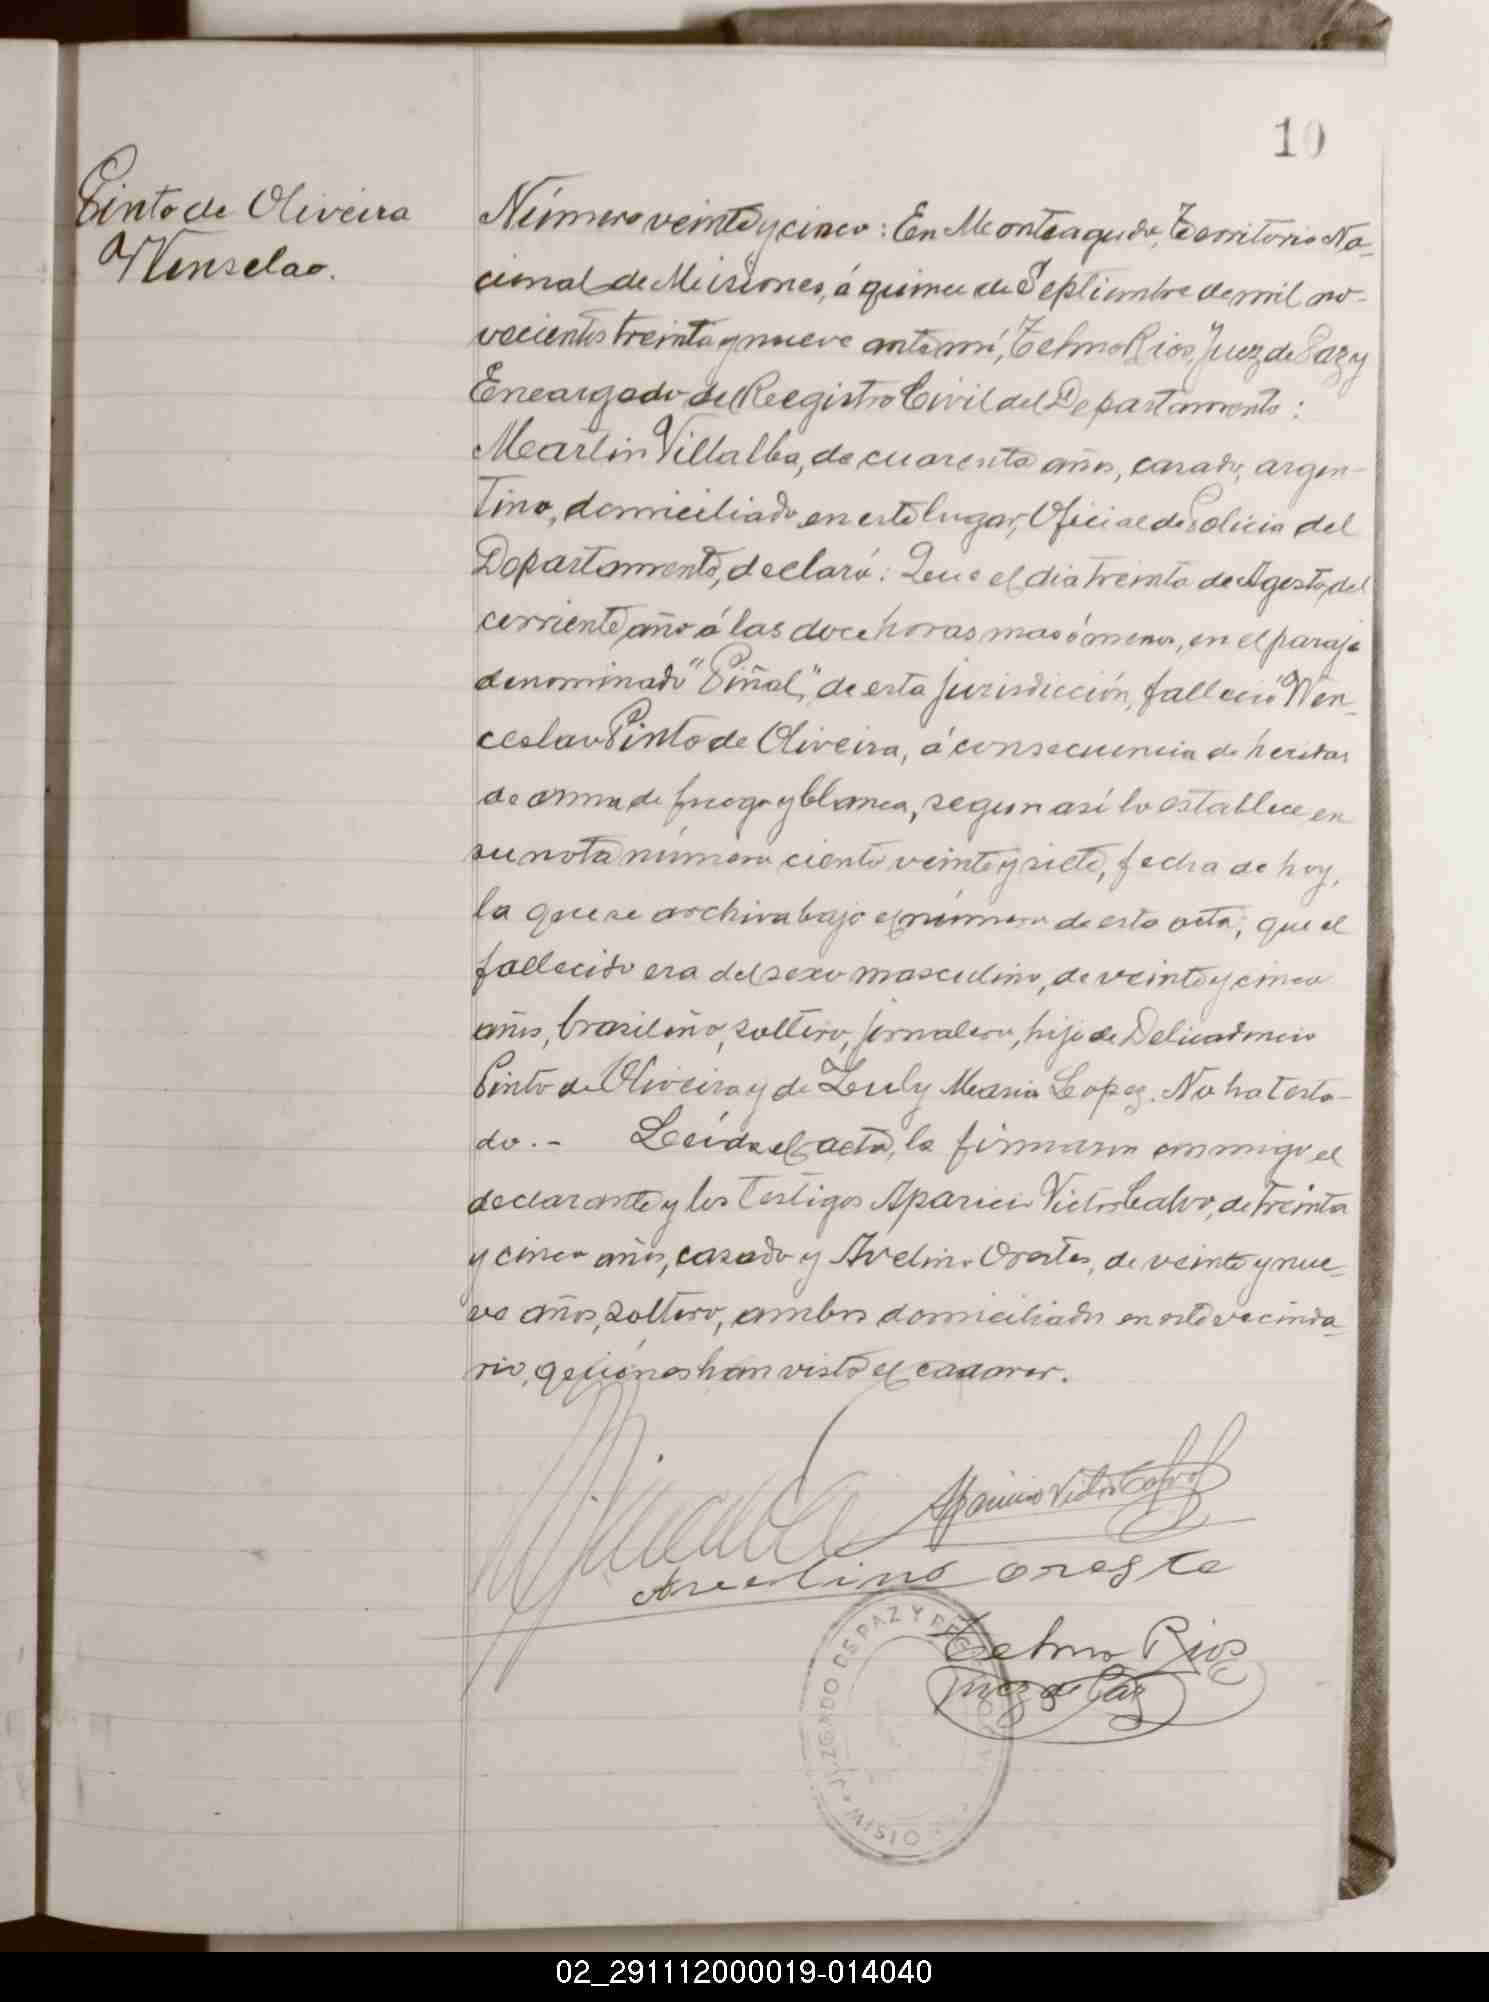 10
Pinto de Oliveira
Wenselao.
Número veinte y cinco: En Monteagudo, Territorio Na-
cional de Misiones, á quince de Septiembre de mil no-
vecientos treinta y nueve ante mí, Telmo Rios, Juez de Paz y
Encargado del Registro Civil del Departamento:
Martin Villalba, de cuarenta años, casado, argen-
tino, domiciliado en este lugar, Oficial de Policia del
Departamento, declaró: Que el dia treinta de Agosto, del
corriente año á las doce horas mas ó menos, en el paraje
denominado "Piñal," de esta jurisdicción, falleció "Wen-
ceslao Pinto de Oliveira, á consecuencia de heridas
de arma de fuego y blanca, segun asi lo establece en
su nota número ciento veinte y siete, fecha de hoy,
la que se archiva bajo el número de esta acta; que el
fallecido era del sexo masculino, de veinte y cinco
años, brasileño, soltero, jornalero, hijo de
Pinto de Oliveira y de Zuly Maria Lopez. No ha testa-
do.- Leida el acta, la firmaron conmigo el
declarante y los testigos Aparicio Victor Calvo, de treinta
y cinco años, casado y Avelino Orestes, de veinte y nue-
ve años, soltero, ambos domiciliados en este vecinda-
rio, quiénes han visto el cadaver.
Aparicio Victor Calvo
Avelino Oreste
Telmo Rios
Juez de Paz
JUZGADO DE PAZ Y REG
02_291112000019-014040